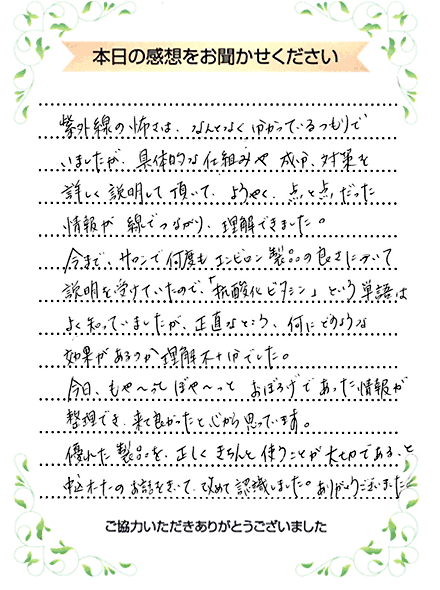 本日の感想をお聞かせください
紫外線の怖さは、なんとなく分かっているつもりで
いましたが、具体的な仕組みや成分、対策を
詳しく説明して頂いて、ようやく、点と点だった
情報が線でつながり、理解できました。
今まで、サロンで何度もエンビロン製品の良さについて
説明を受けていたので、「抗酸化ビタミン」という単語は
よく知っていましたが、正直なところ、何にどのような
効果があるのか理解不十分でした。
今日、もや〜っとぼや〜っとおぼろげであった情報が
整理でき、来て良かったと心から思っています。
優れた製品を、正しくきちんと使うことが大切である、と
のお話をきいて、改めて認識しました。ありがとうございました
ご協力いただきありがとうございました